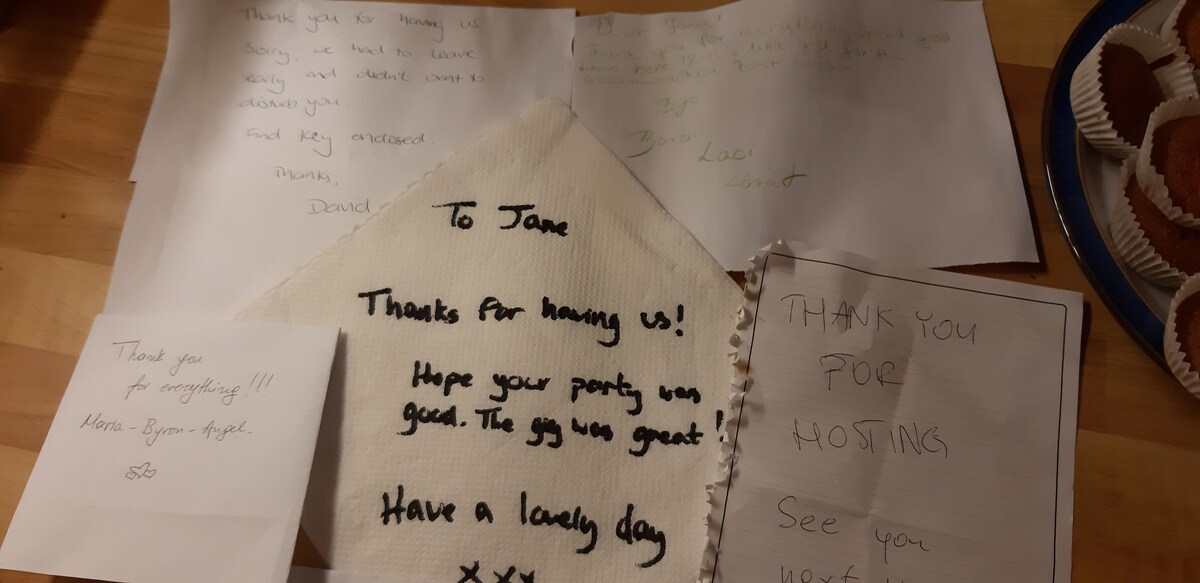 Thank you for having us
Sorry, we had to leave
early and didn't want to
disturb you.
and key enclosed.
Thanks,
David
Jane!
Thank you for
Laci
To Jane
Thanks for having us!
Hope your party was
good. The gig was great!
Have a lovely day
xxx
Thank you
for everything!!!
Maria-Byron-Angel-
THANK YOU
FOR
HOSTING
See you
next